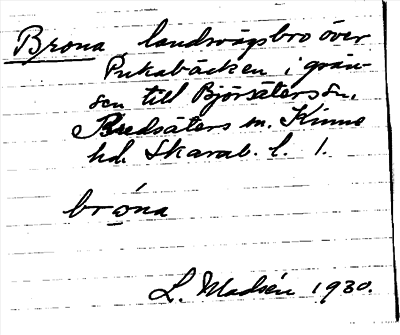 Brona landsvägsbro över
Pukabäcken i grän-
sen till Björsäters sn,
Bredsäters sn. Kinne
hd. Skarab. l. 1.
bróna
L. Madsén 1930.